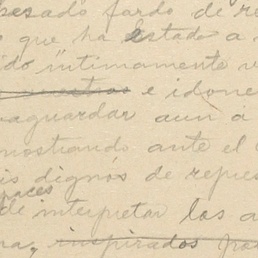 pesado fardo de re
o que ha estado a
ido íntimamente v
e idone
vaguardar aun á
mostrando ante el
is dignos de repre
paces
de interpretar las a
ra, inspirados por